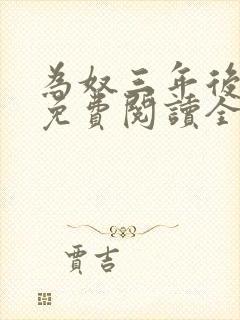 為奴三年後
免費閱讀全
賈吉